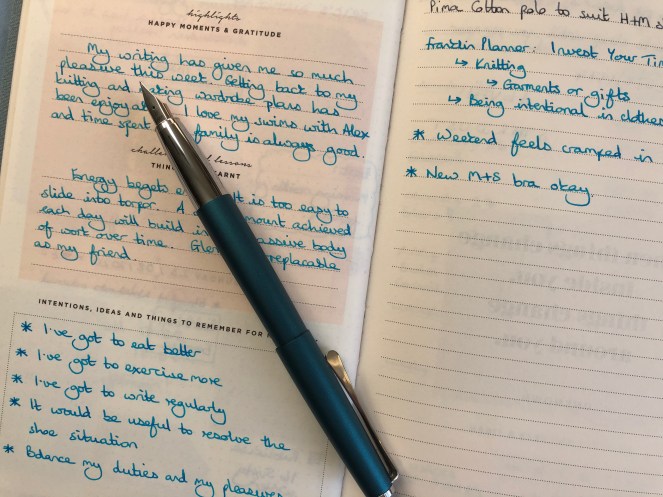 highlights
HAPPY MOMENTS & GRATITUDE
My writing has given me so much
pleasure this week. Getting back to my
knitting and making wardrobe plans has
been enjoyable. I love my swims with Alex
and time spent family is always good.
lessons
Energy begets It is too easy to
slide into torpor. A amount achieved
each day will build massive body
of work over time.
as my friend.
INTENTIONS, IDEAS AND THINGS TO REMEMBER FOR
* I've got to eat better
* I've got to exercise more
* I've got to write regularly
* It would be useful to resolve the
shoe situation
* Balance my duties and my pleasures
Pima Cotton polo to suit H+M s
Franklin Planner: Invest Your Tim
↳ Knitting
↳ Garments or gifts
↳ Being intentional in clothes
* Weekend feels cramped in
* New M+S bra okay